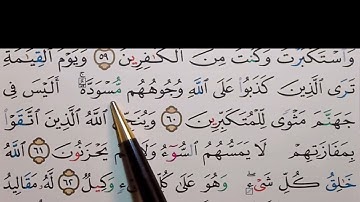 وَٱسْتَكْبَرْتَ وَكُنتَ مِنَ ٱلْكَٰفِرِينَ ٥٩ وَيَوْمَ ٱلْقِيَٰمَةِ
تَرَى ٱلَّذِينَ كَذَبُوا۟ عَلَى ٱللَّهِ وُجُوهُهُم مُّسْوَدَّةٌ ۚ أَلَيْسَ فِى
جَهَنَّمَ مَثْوًى لِّلْمُتَكَبِّرِينَ ٦٠ وَيُنَجِّى ٱللَّهُ ٱلَّذِينَ ٱتَّقَوْا۟
بِمَفَازَتِهِمْ لَا يَمَسُّهُمُ ٱلسُّوٓءُ وَلَا هُمْ يَحْزَنُونَ ٦١ ٱللَّهُ
خَٰلِقُ كُلِّ شَىْءٍ ۖ وَهُوَ عَلَىٰ كُلِّ شَىْءٍ وَكِيلٌ ٦٢ لَّهُۥ مَقَالِيدُ